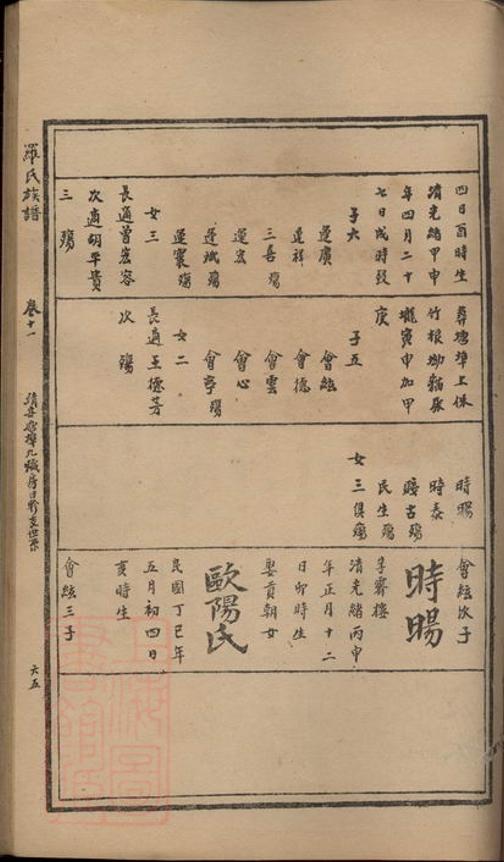 四日酉時生
清光緒甲申
年四月二十
七日戌時歿
子六
運廣
運祥
三喜殤
運宏
運斌殤
運襄殤
女三
長適曾宏容
次適胡平貴
三殤
葬塘埠上保
竹根坳
壠寅申加甲
庚
子五
會絃
會德
會雲
會心
會亨殤
女二
長適王德芳
次殤
時暘
時泰
賠古殤
民生殤
女三俱殤
會絃次子
時暘
字霽樓
清光緒丙申
年正月十二
日卯時生
娶貢朝女
歐陽氏
民國丁巳年
五月初四日
亥時生
會絃三子
羅氏族譜
卷十一
六五